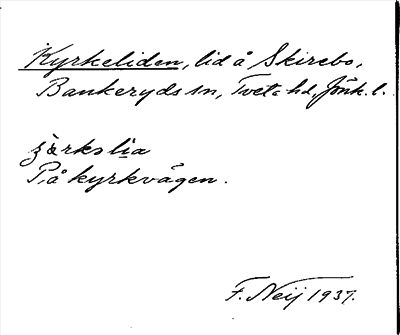 Kyrkeliden, lid å Skirebo,
Bankeryds sn, Tveta hd, Jönk. l.
ȥærkslia
På kyrkvägen.
F. Neij 1937.